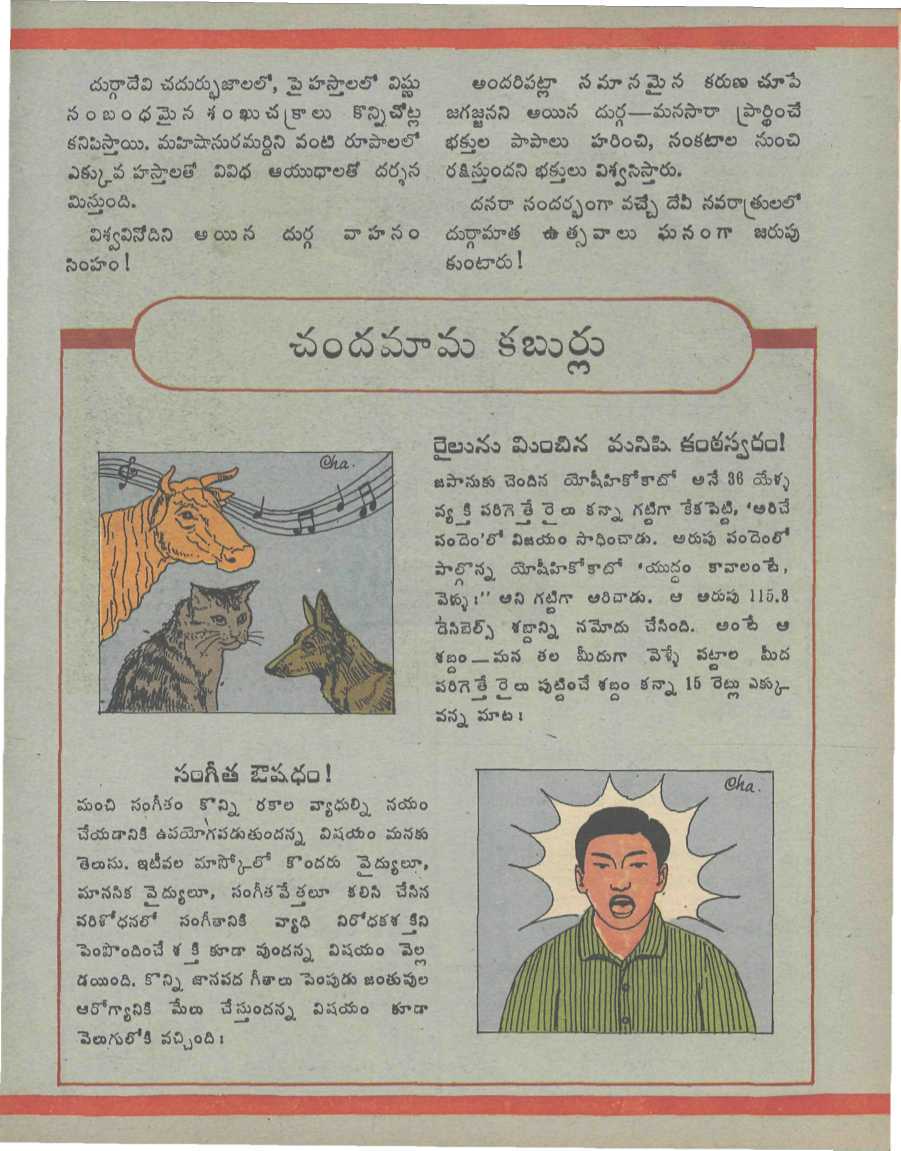 దుర్గాదేవి చదుర్భుజాలలో, పై హస్తాలలో విష్ణు
సంబంధమైన శంఖుచక్రాలు కొన్నిచోట్ల
కనిపిస్తాయి. మహిషాసురమర్దిని వంటి రూపాలలో
ఎక్కువ హస్తాలతో వివిధ ఆయుధాలతో దర్శన
మిస్తుంది.
విశ్వవినోదిని అయిన దుర్గ వాహనం
సింహం!
అందరిపట్లా సమానమైన కరుణ చూపే
జగజ్జనని అయిన దుర్గ—మనసారా ప్రార్థించే
భక్తుల పాపాలు హరించి, సంకటాల నుంచి
రక్షిస్తుందని భక్తులు విశ్వసిస్తారు.
దసరా సందర్భంగా వచ్చే దేవీ నవరాత్రులలో
దుర్గామాత ఉత్సవాలు ఘనంగా జరుపు
కుంటారు!
చందమామ కబుర్లు
రైలును మించిన మనిషి కంఠస్వరం!
జపానుకు చెందిన యోషీహికోకాటో అనే 36 యేళ్ళ
వ్యక్తి పరిగెత్తే రైలు కన్నా గట్టిగా కేకపెట్టి, 'అరిచే
పందెం'లో విజయం సాధించాడు. అరుపు పందెంలో
పాల్గొన్న యోషీహికోకాటో 'యుద్ధం కావాలంటే,
వెళ్ళు!'' అని గట్టిగా అరిచాడు. ఆ అరుపు 115.8
డెసిబెల్స్ శబ్దాన్ని నమోదు చేసింది. అంటే ఆ
శబ్దం—మన తల మీదుగా వెళ్ళే పట్టాల మీద
పరిగెత్తే రైలు పుట్టించే శబ్దం కన్నా 15 రెట్లు ఎక్కు
వన్న మాట!
Cha.
సంగీత ఔషధం!
మంచి సంగీతం కొన్ని రకాల వ్యాధుల్ని నయం
చేయడానికి ఉపయోగపడుతుందన్న విషయం మనకు
తెలుసు. ఇటీవల మాస్కోలో కొందరు వైద్యులూ,
మానసిక వైద్యులూ, సంగీతవేత్తలూ కలిసి చేసిన
పరిశోధనలో సంగీతానికి వ్యాధి నిరోధకశక్తిని
పెంపొందించే శక్తి కూడా వుందన్న విషయం వెల్ల
డయింది. కొన్ని జానపద గీతాలు పెంపుడు జంతువుల
ఆరోగ్యానికి మేలు చేస్తుందన్న విషయం కూడా
వెలుగులోకి వచ్చింది!
Cha.